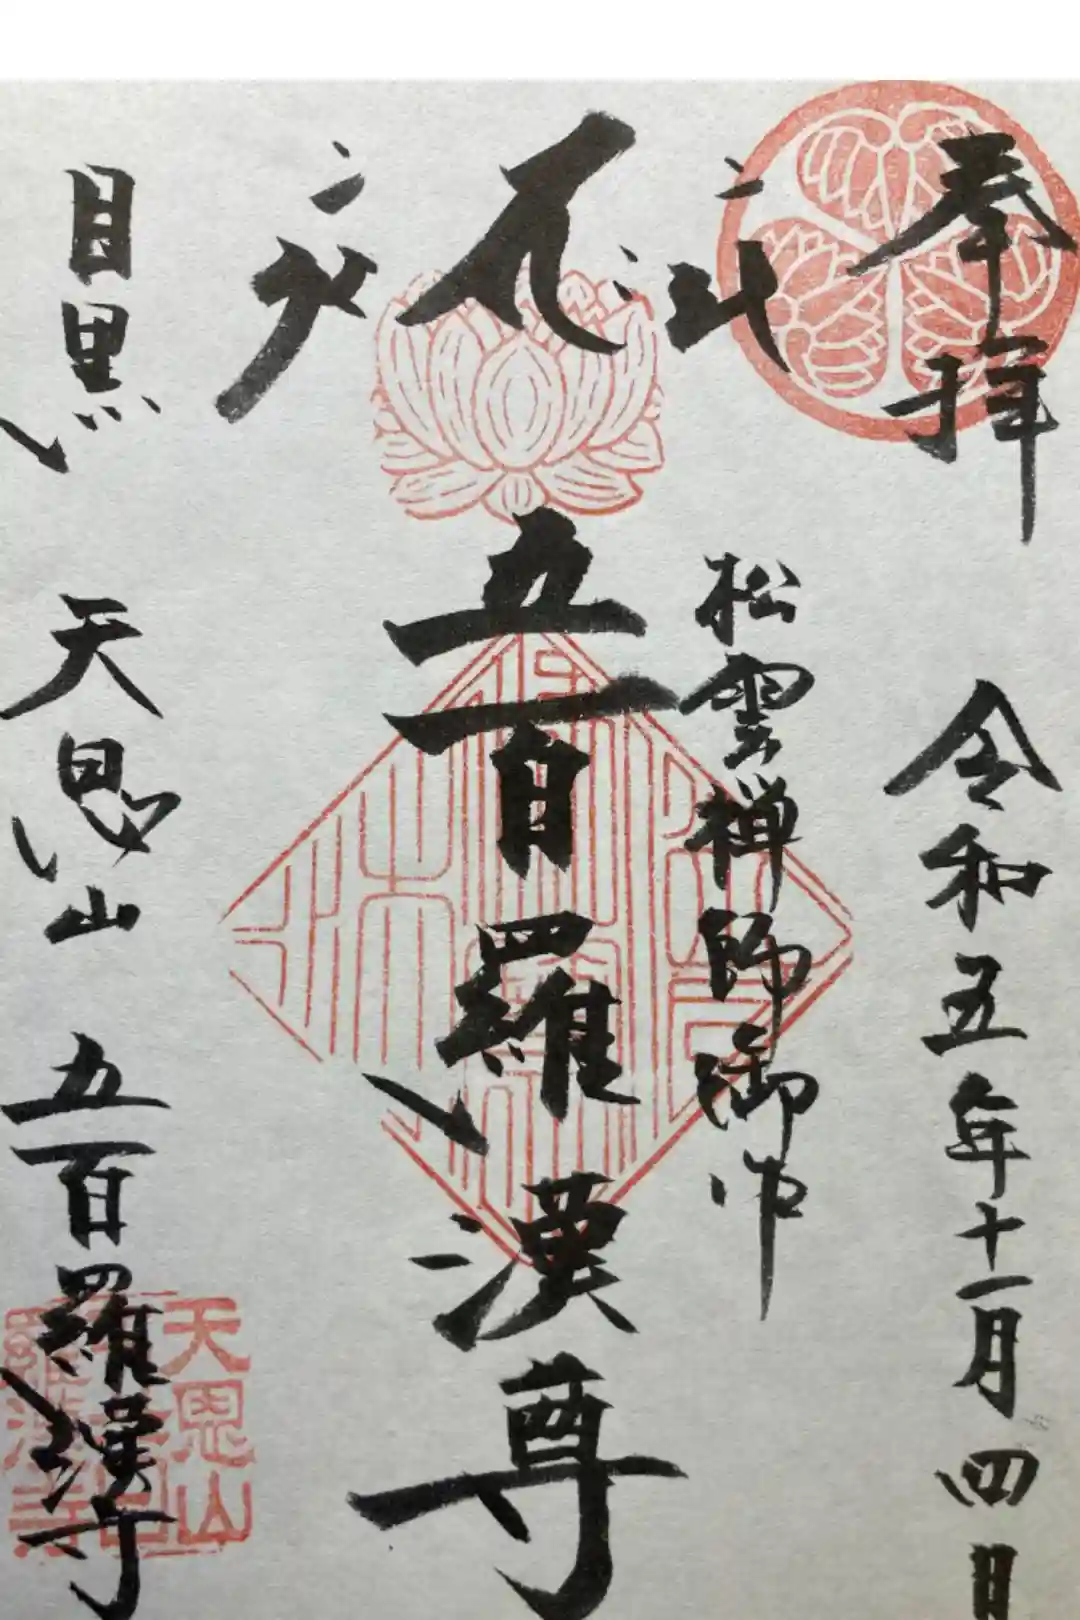 奉拝
令和五年十一月四日
松雲禅師御作
五百羅漢尊
目黒 天恩山 五百羅漢寺
天恩山
五百
羅漢寺